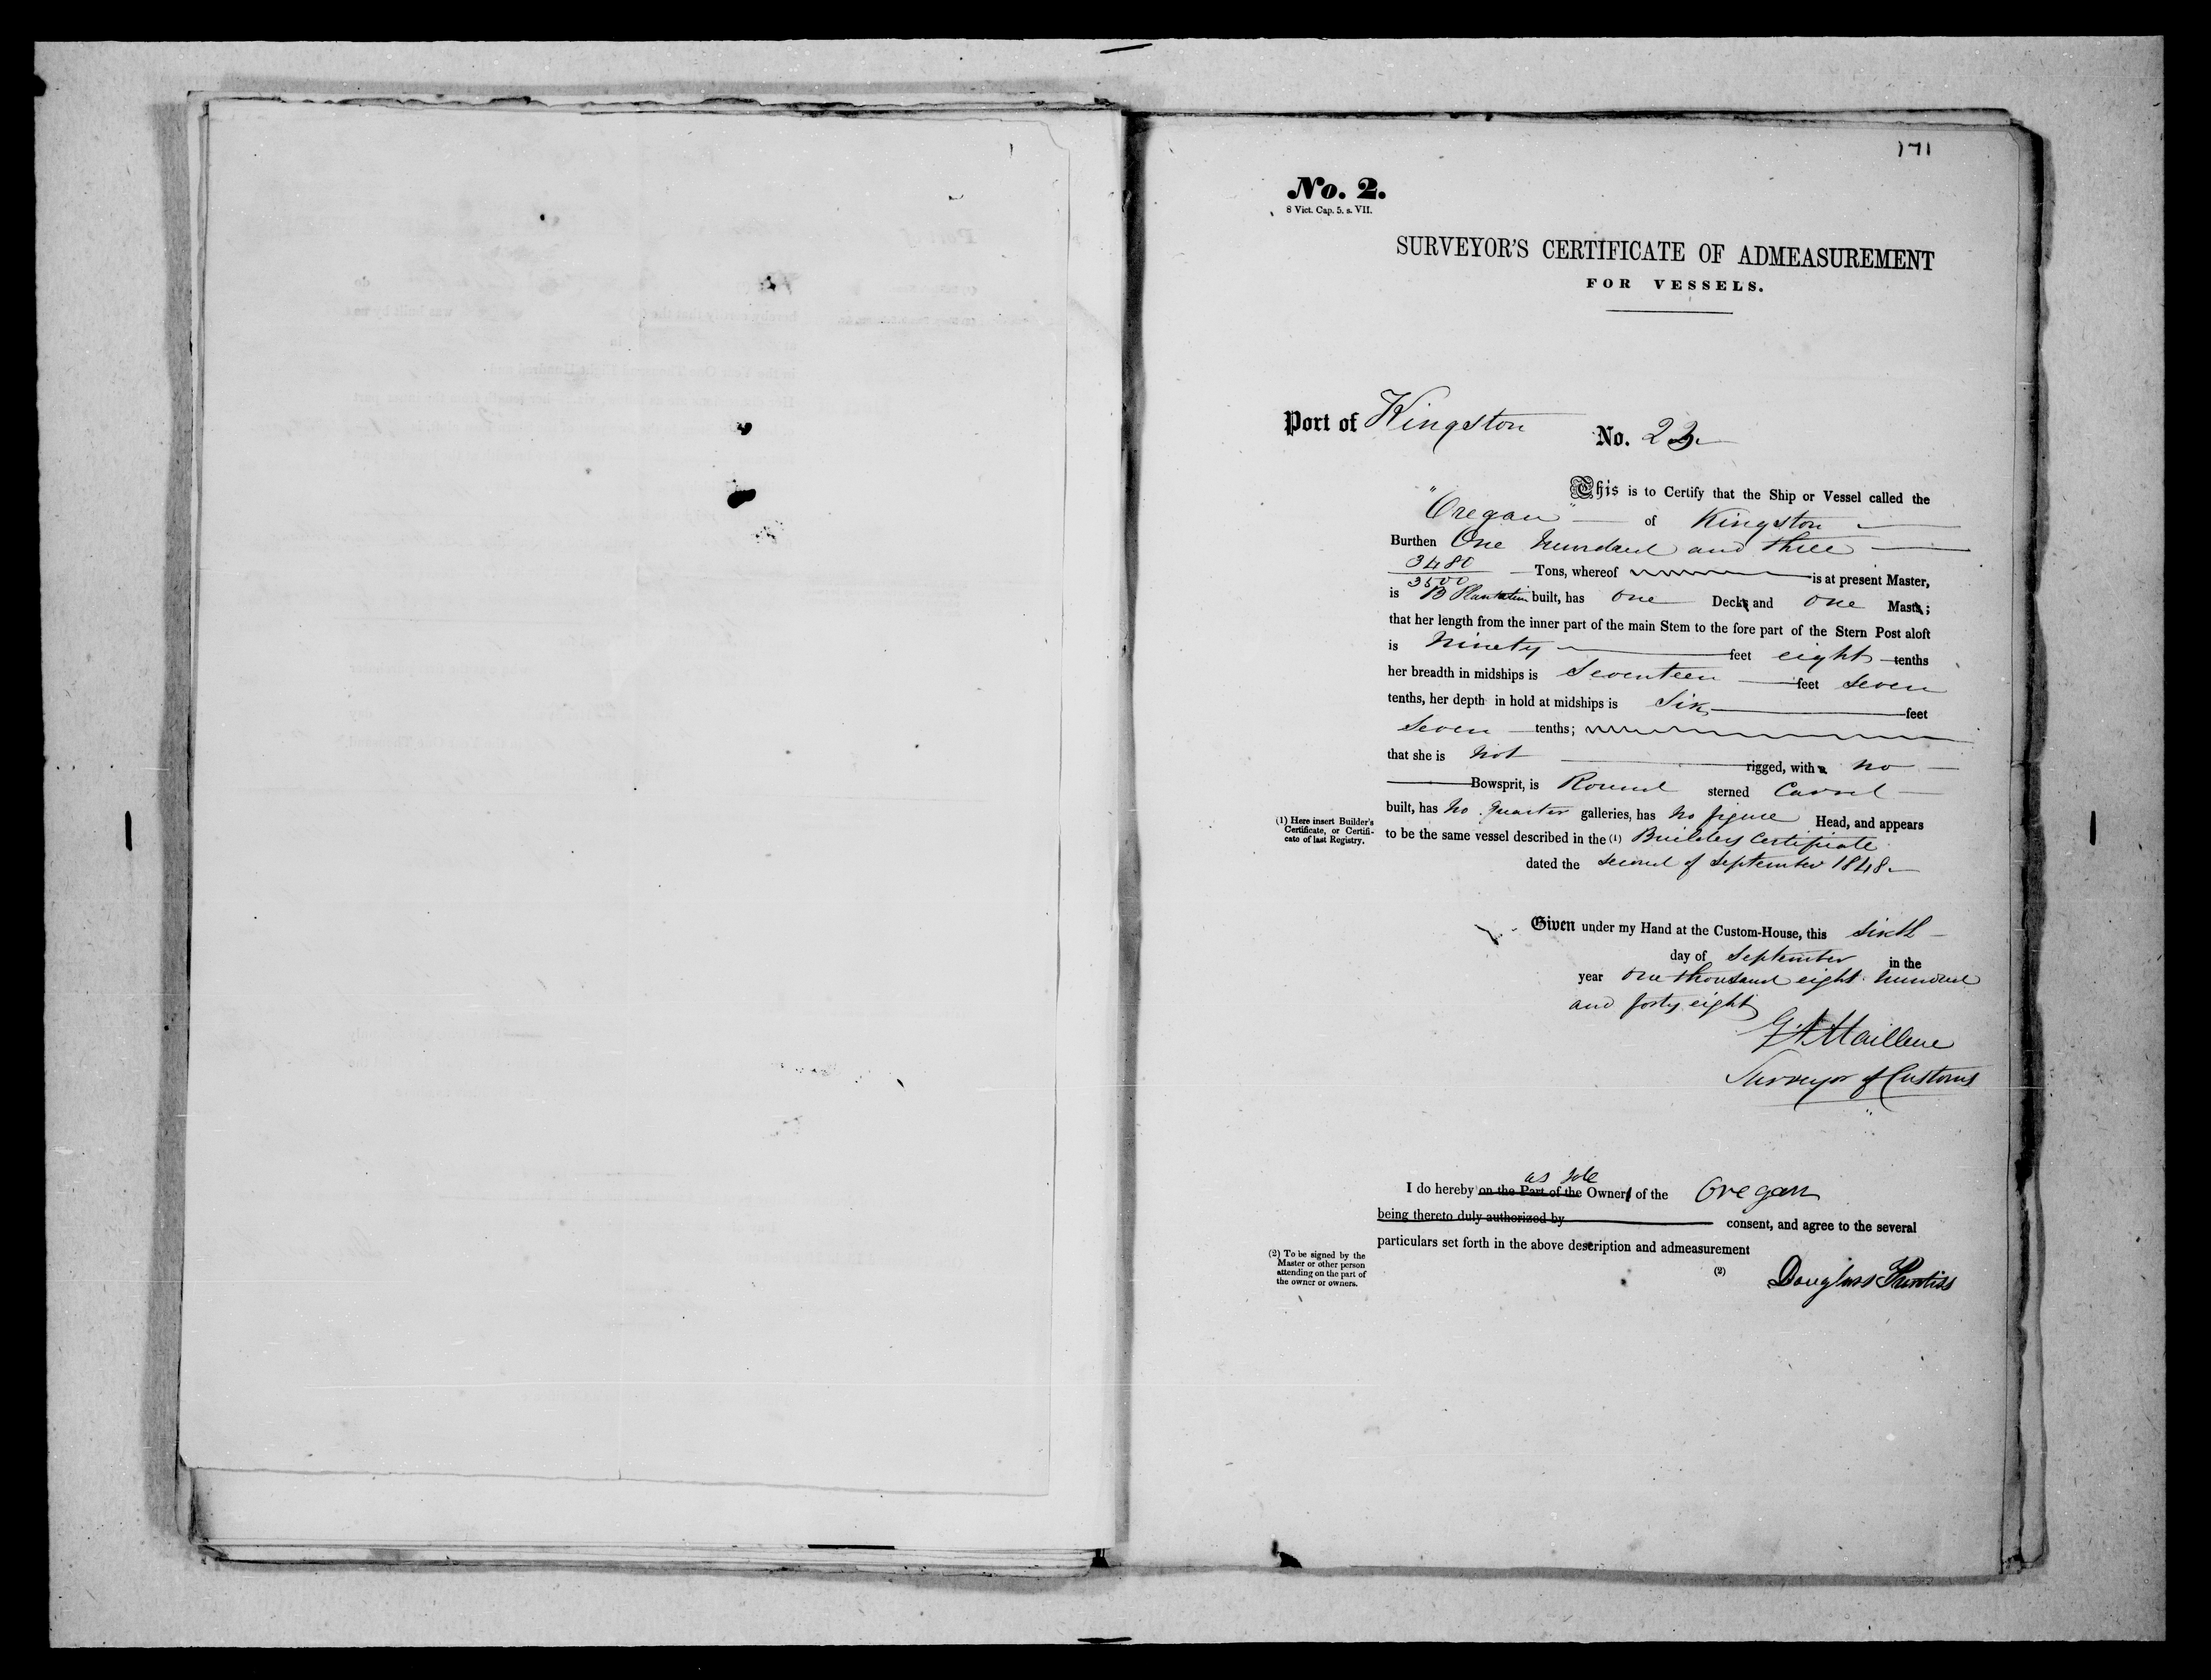 171
No. 2.
8 Vict. Cap. 5. s. VII.
SURVEYOR'S CERTIFICATE OF ADMEASUREMENT
FOR VESSELS.
Port of Kingston No. 23
This is to Certify that the Ship or Vessel called the
"Oregon" of Kingston
Burthen One hundred and three
3480
3500 Tons, whereof is at present Master,
is B Plantation built, has one Decks and one Masts;
that her length from the inner part of the main Stem to the fore part of the Stern Post aloft
is Ninety feet eight tenths
her breadth in midships is Seventeen feet Seven
tenths, her depth in hold at midships is Six feet
Seven tenths;
that she is Not rigged, with a no
Bowsprit, is Round sterned Carvel
built, has No Quarter galleries, has No figure Head, and appears
(1) Here insert Builder's
Certificate, or Certifi-
cate of last Registry.
to be the same vessel described in the (1) Builders Certificate
dated the Second of September 1848
Given under my Hand at the Custom-House, this Sixth
day of September in the
year One thousand eight hundred
and forty eight
Surveyor of Customs
as sole
I do hereby on the Part of the Owners of the Oregon
being thereto duly authorized by consent, and agree to the several
particulars set forth in the above description and admeasurement
(2) To be signed by the
Master or other person
attending on the part of
the owner or owners.
(2) Douglass Prentiss